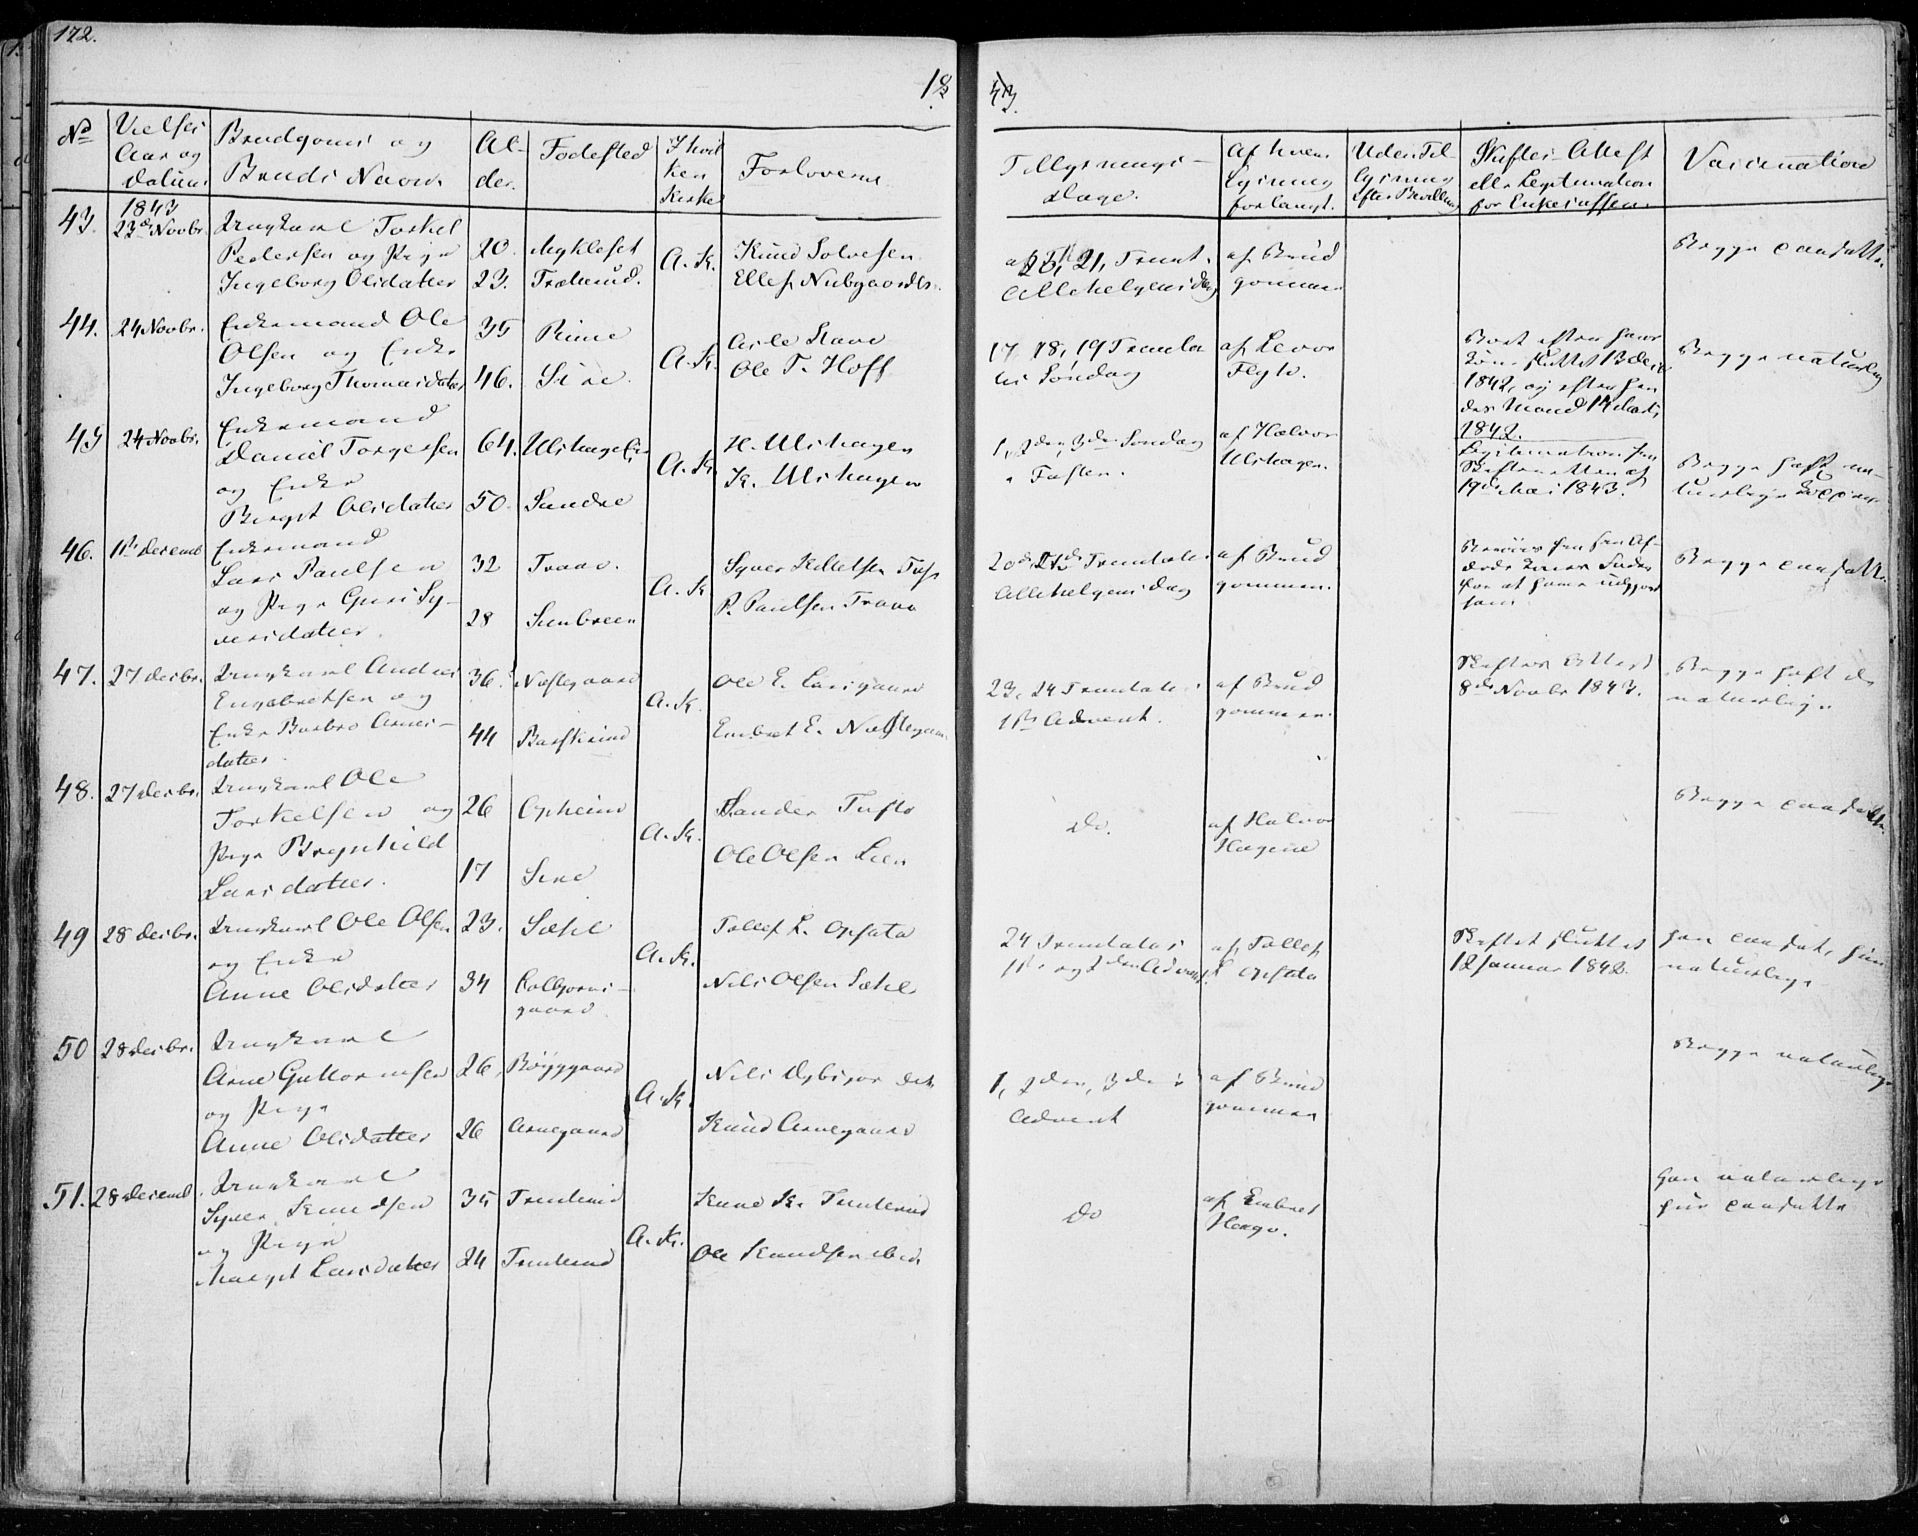 172.
18
43.
No
Vielses
Aar og
Datum
Brudgoms og
Bruds Navn.
Al-
der.
Fødested
I hvil
ken
Kirke
Forloverne
Tillysnings-
Dage.
Af hvem
Lysning
forlangt.
Uden Til
lysning
efter Bevilling
Skiftes-Attest
eller Legitimation
for Enkesassen.
Vaccination
43.
1843
23de Novbr.
Ungkarl Torkel
Pedersen og Pige
Ingeborg Olsdatter
20.
23.
Mykleset
Træterud.
A. K.
Knud Solvesen
Ellef Nubgaarden.
20, 21, Trinit.
Allehelgensdag
af Brud
gommen
Begge coudatte.
44.
24 Novbr.
Enkemand Ole
Olsen og Enke
Ingeborg Thomasdatter
35
46.
Rime
Sire.
A. K.
Asle
Ole T. Hoff
17, 18, 19 Trinita
tis Søndag
af Levor
Flyto.
Skiftet
1842, og efter hen
des Mand
1842.
Begge naturlig
45
24 Novbr.
Enkemand
Daniel Torgersen
og Enke
Birgit Olsdatter
64.
50.
Ulshagen
Sundre
A. K.
H. Ulshagen
K. Ulshagen
1, 2den, 3de Søndag
i Fasten.
af Halvor
Ulshagen.
Legitimation fra
Skifteretten af
19de Mai 1843.
Begge haft na-
turlige Kopper
46.
1ste Decemb
Enkemand
Lars Paulsen
og Pige Guri Sy-
versdatter.
32
28
Traao.
Sunbreen
A. K.
Syver Killetsen Tufs
P. Paulsen Traao
20de, 21de Trinitatis
Allehelgensdag
af Brud
gommen.
for at have udgjort
ham
Begge coudatte.
47.
27 Decbr.
Ungkarl Andres
Engebretsen og
Enke Barbro Arnes-
datter.
36.
44
Næstegaard
Barskrind
A. K.
Ole E. Larsgaard
Embret E. Næstegaar
23, 24 Trinitatis
1ste Advent.
af Brud
gommen.
Skiftes Attest
8de Novbr 1843.
Begge haft de
naturlige
48.
27 Decbr.
Ungkarl Ole
Torkelsen og
Pige Bregnhild
Larsdatter.
26
17
Opheim
Sire
A. K.
Sander Tufto
Ole Olsen Lien
Do.
af Halvor
Hagene
Begge coudatte.
49
28 Decbr.
Ungkarl Ole Olsen
og Enke
Anne Olsdatter
23.
34
Sæhle
Colbjorns-
gaard
A. K.
Tollef L. Opsata
Nils Olsen Sæhle
24 Trinitatis
1ste og 2den Advent.
af Tollef
L. Opsata
Skiftet sluttet
12 Januar 1842.
han coudat, hun
naturlige
50
28 Decbr.
Ungkarl
Arne Guttormsen
og Pige
Anne Olsdatter
26,
26
Røyggaard
Arnegaard
A. K.
Nils
Knud Arnegaard
1, 2den, 3de i
Advent
af Brud
gommen
Begge naturlige
51.
28 Decemb
Ungkarl
Syver Knudsen
og Pige
Margit Larsdatter
35
24
Trinterud
Trinterud
A. K.
Knud K. Trinterud
Ole Knudsen ibid.
Do
af Embret
Haago.
han naturlige
hun coudatte